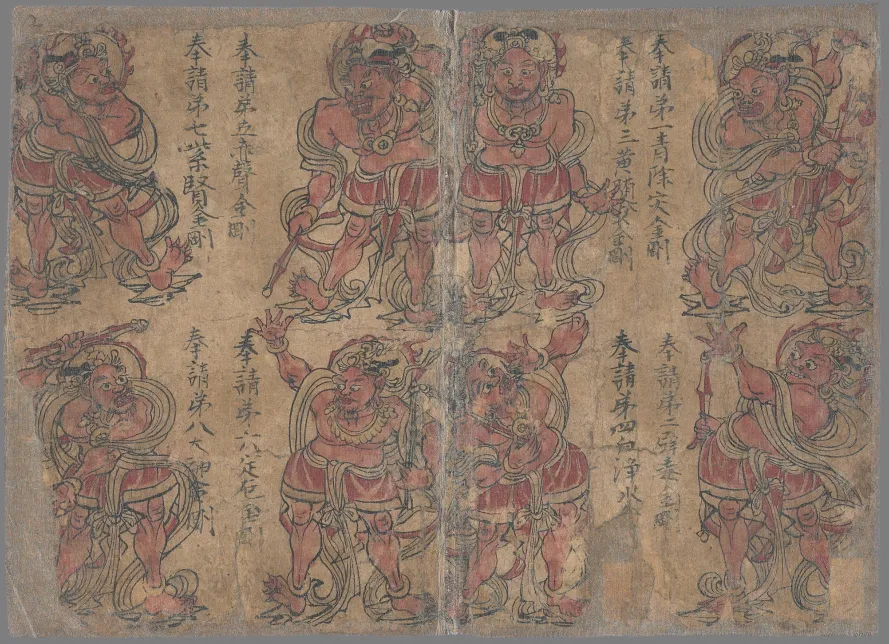 奉請第一青除灾金剛
奉請第二辟毒金剛
奉請第三黃隨求金剛
奉請第四白淨水
奉請第五赤聲金剛
奉請第六定厄金剛
奉請第七紫賢金剛
奉請第八大神金剛